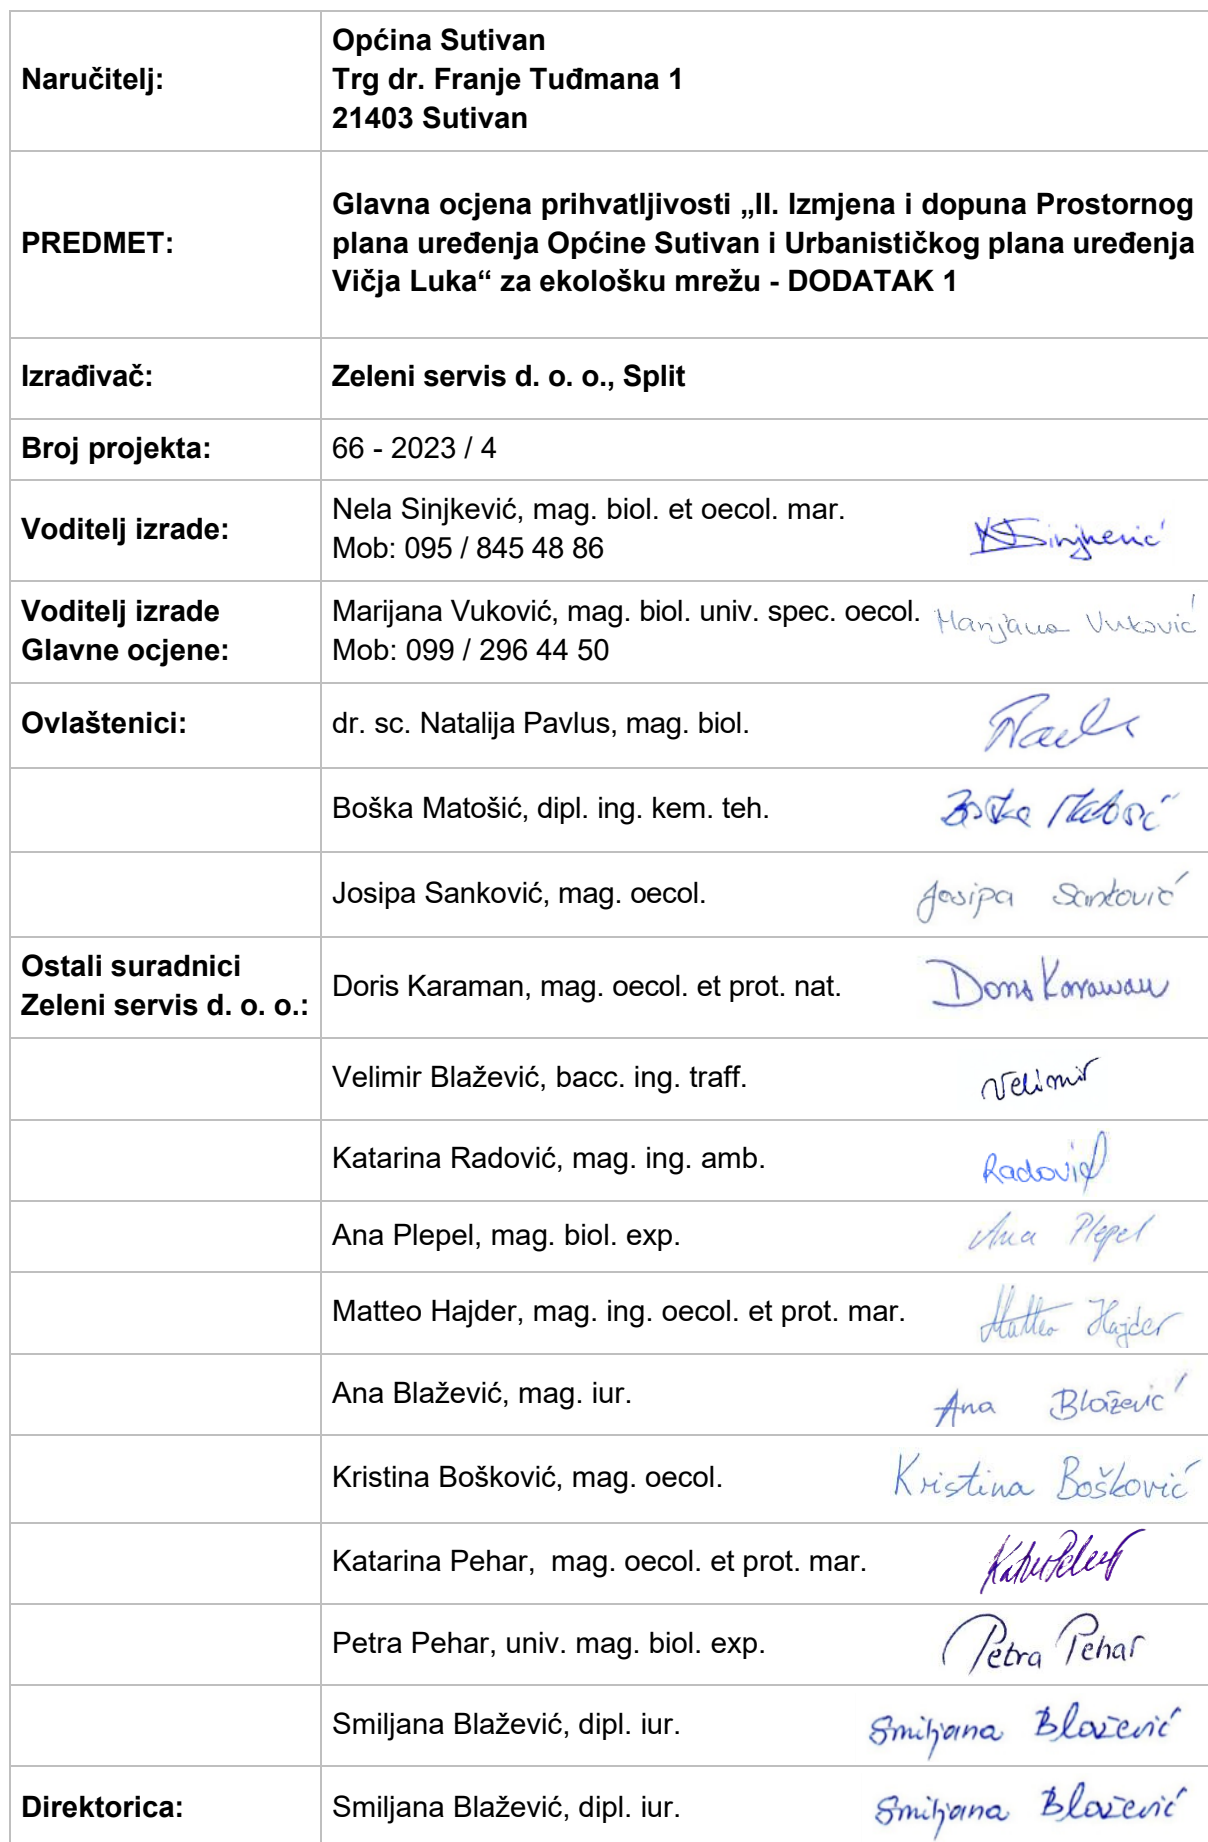 Naručitelj:
Općina Sutivan
Trg dr. Franje Tuđmana 1
21403 Sutivan
PREDMET:
Glavna ocjena prihvatljivosti „II. Izmjena i dopuna Prostornog
plana uređenja Općine Sutivan i Urbanističkog plana uređenja
Vičja Luka“ za ekološku mrežu - DODATAK 1
Izrađivač:
Zeleni servis d. o. o., Split
Broj projekta:
66 - 2023 / 4
Voditelj izrade:
Nela Sinjkević, mag. biol. et oecol. mar.
Mob: 095 / 845 48 86
Voditelj izrade
Glavne ocjene:
Marijana Vuković, mag. biol. univ. spec. oecol. Marijana Vuković
Mob: 099 / 296 44 50
Ovlaštenici:
dr. sc. Natalija Pavlus, mag. biol.
Boška Matošić, dipl. ing. kem. teh. Boška Matošić
Josipa Sanković, mag. oecol. Josipa Sanković
Ostali suradnici
Zeleni servis d. o. o.:
Doris Karaman, mag. oecol. et prot. nat. Doris Karaman
Velimir Blažević, bacc. ing. traff. Velimir
Katarina Radović, mag. ing. amb. Radović
Ana Plepel, mag. biol. exp. Ana Plepel
Matteo Hajder, mag. ing. oecol. et prot. mar. Matteo Hajder
Ana Blažević, mag. iur. Ana Blažević
Kristina Bošković, mag. oecol. Kristina Bošković
Katarina Pehar, mag. oecol. et prot. mar.
Petra Pehar, univ. mag. biol. exp. Petra Pehar
Smiljana Blažević, dipl. iur. Smiljana Blažević
Direktorica:
Smiljana Blažević, dipl. iur. Smiljana Blažević